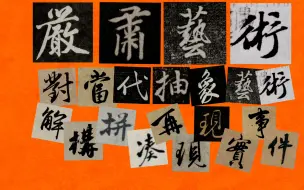 嚴肅藝術
對當代抽象藝術
解構拼湊再現現實事件